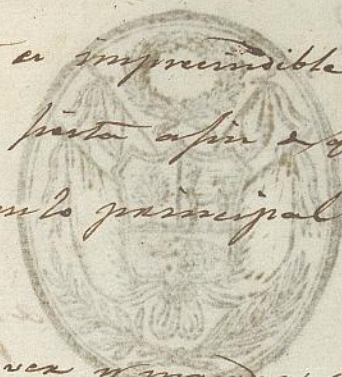 es imprescindible
fiesta afin de q
ento principal
vez